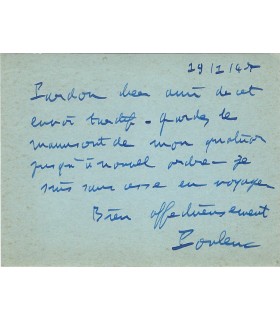 19/1/47
Pardon cher ami de cet
envoi tardif – gardez le
manuscrit de mon quatuor
jusqu'à nouvel ordre – je
suis sans cesse en voyage
Bien affectueusement
Poulenc